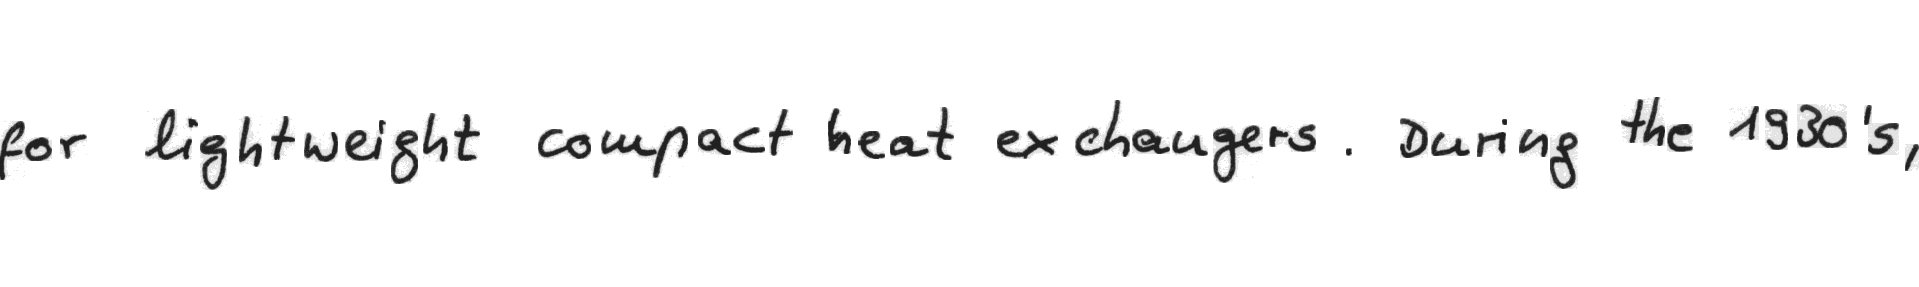 for lightweight compact heat exchangers. During the 1930's,